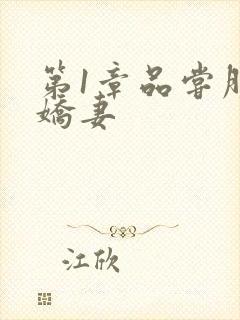 第1章品尝
娇妻
江欣